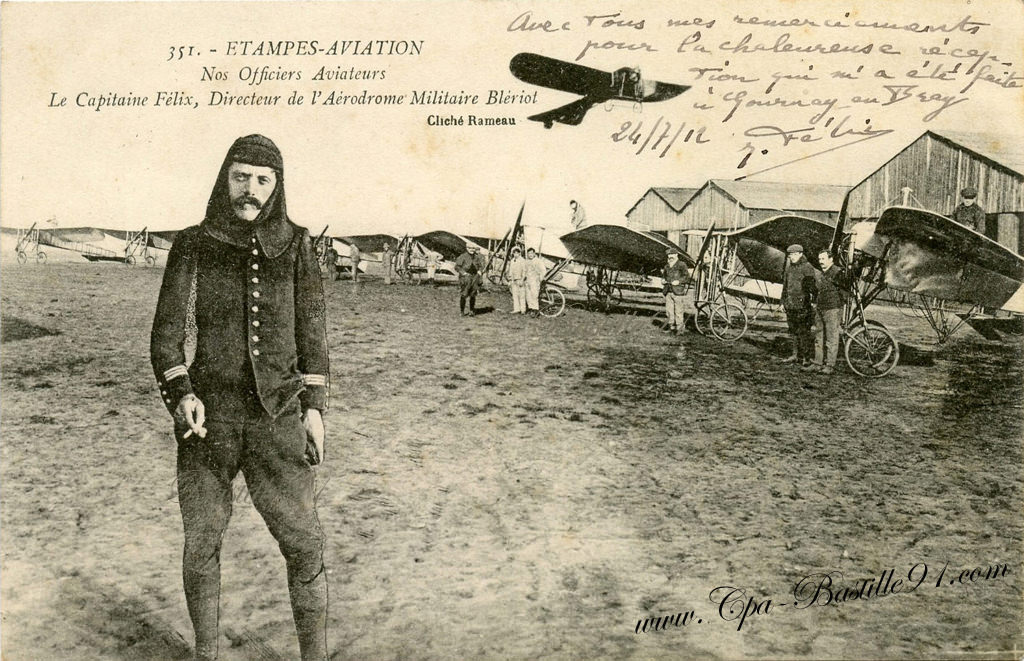 351. - ETAMPES-AVIATION
Nos Officiers Aviateurs
Le Capitaine Félix, Directeur de l'Aérodrome Militaire Blériot
Cliché Rameau
Avec Tous mes remerciements
pour la chaleureuse récep
tion qui m'a été faite
à Gournay en Bray
24/7/12 Félix
www.Cpa-Bastille91.com